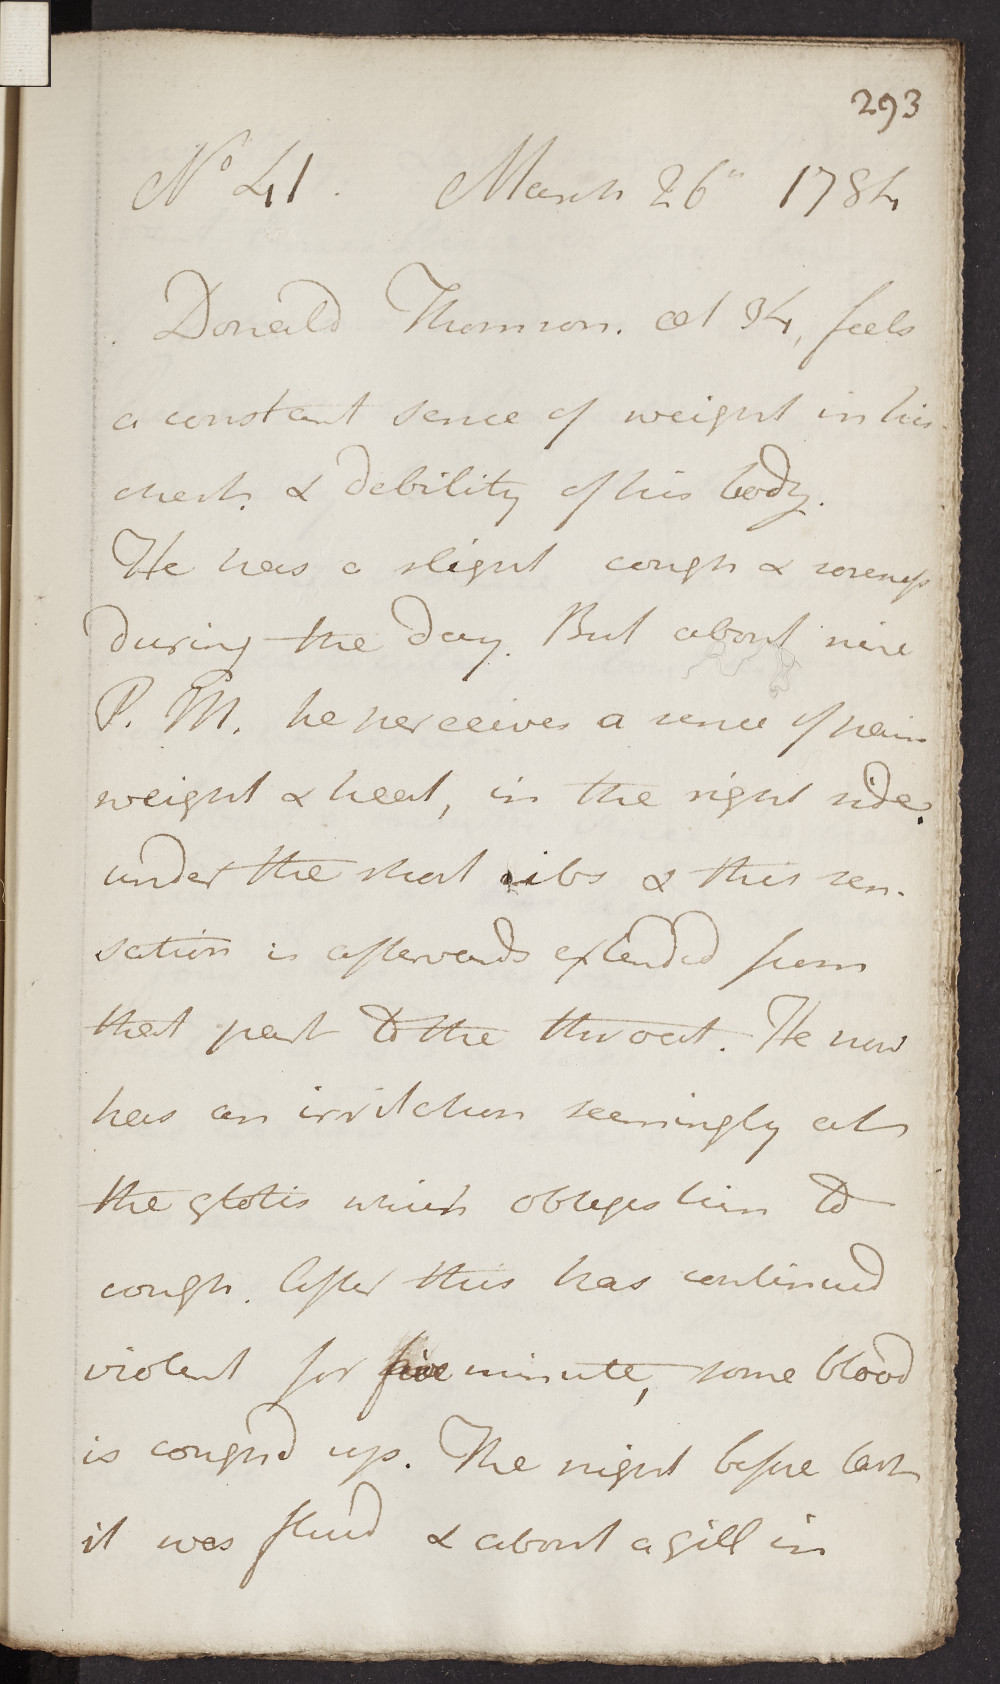 293
No 41. March 26th 1784
Donald Thomson. æt 34, feels
a constant sence of weight in his
chest, & debility of his body.
He has a slight cough & soreness
during the day. But about nine
P. M. he perceives a sence of pain
weight & heat, in the right side,
under the short ribs & this sen-
sation is afterwards extended from
that part to the throat. He now
has an irritation seemingly at
the glotis which obleges him to
cough. After this has continued
violent for five minute, some blood
is coughd up. The night before last
it was fluid & about a gill in